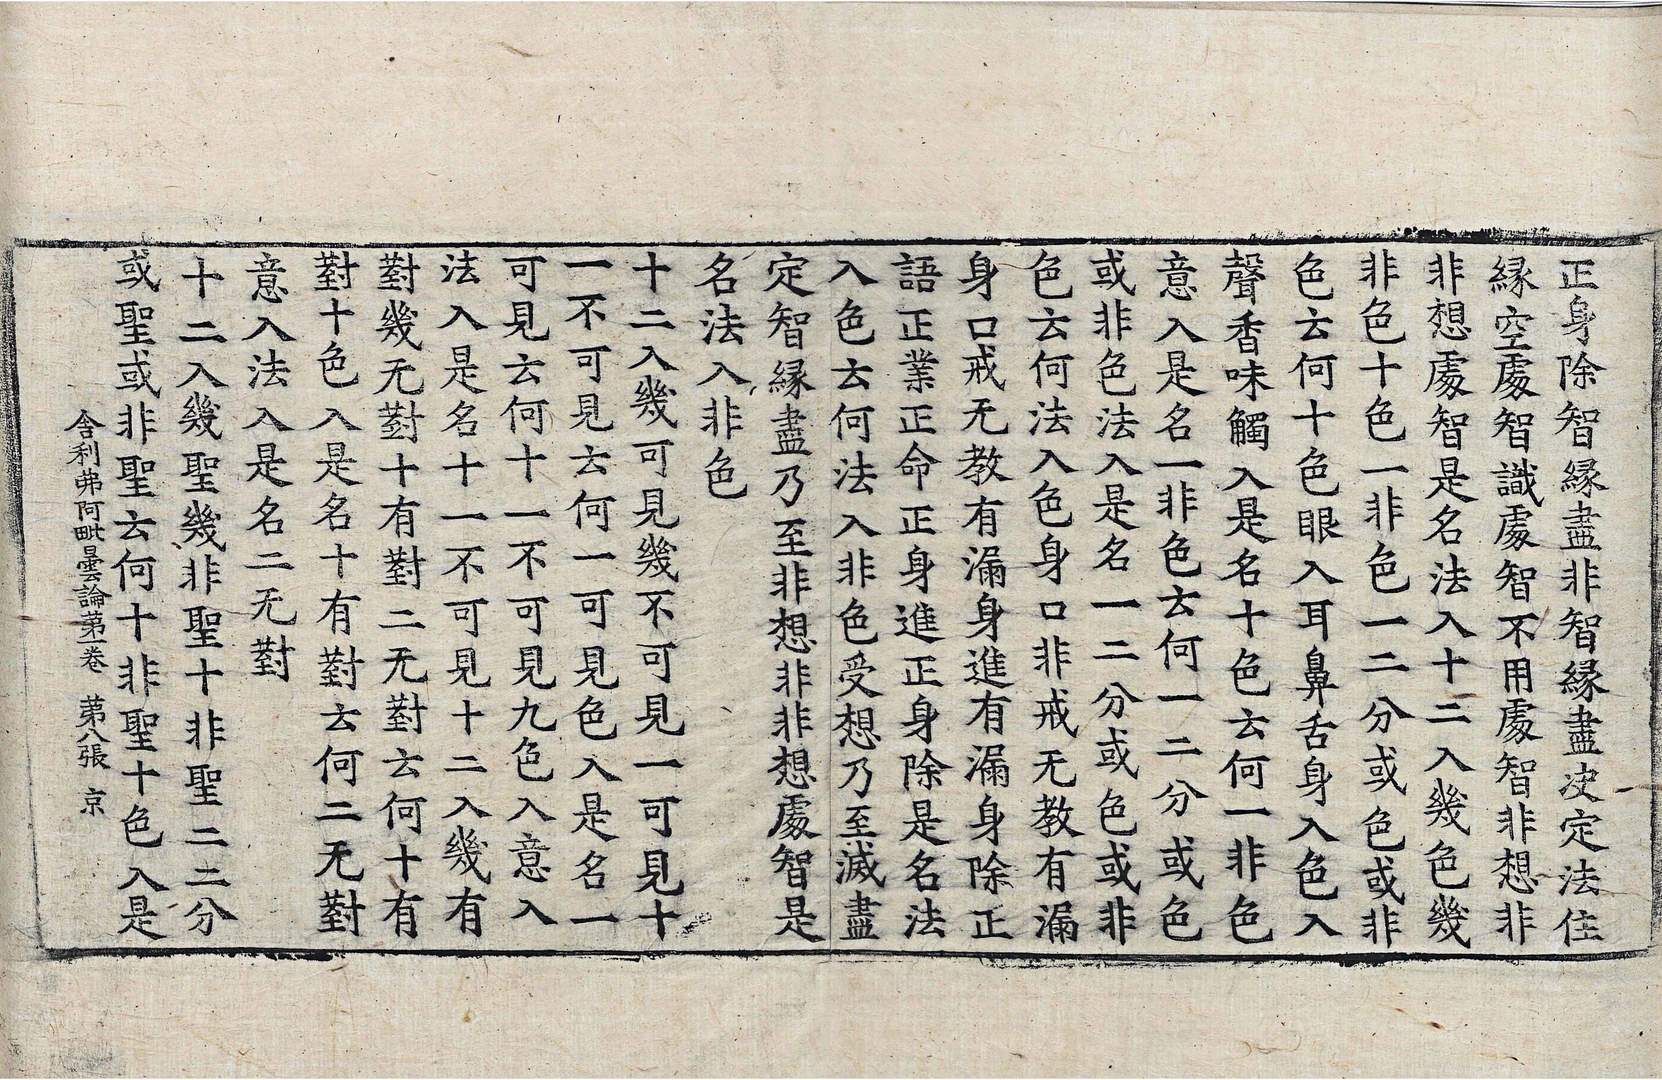 正身除智縁盡非智縁盡决定法住
縁空處智識處智不用處智非想非
非想處智是名法入十二入幾色幾
非色十色一非色一二分或色或非
色云何十色眼入耳鼻舌身入色入
聲香味觸入是名十色云何一非色
意入是名一非色云何一二分或色
或非色法入是名一二分或色或非
色云何法入色身口非戒无教有漏
身口戒无教有漏身進有漏身除正
語正業正命正身進正身除是名法
入色云何法入非色受想乃至滅盡
定智縁盡乃至非想非非想處智是
名法入非色
十二入幾可見幾不可見一可見十
一不可見云何一可見色入是名一
可見云何十一不可見九色入意入
法入是名十一不可見十二入幾有
對幾无對十有對二无對云何十有
對十色入是名十有對云何二无對
意入法入是名二无對
十二入幾聖幾非聖十非聖二二分
或聖或非聖云何十非聖十色入是
舍利弗阿毗曇論第一卷　第八張　京